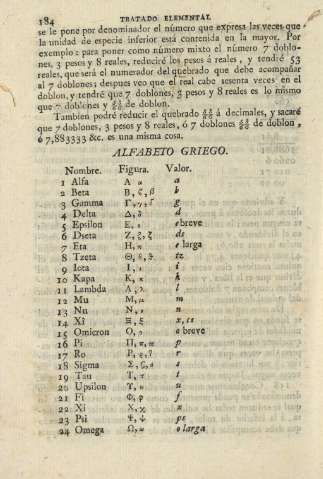 184 TRATADO ELEMENTAL
se le pone por denominador el número que expresa las veces que
la unidad de especie inferior está contenida en la mayor. Por
exemplo: para poner como número mixto el número 7 doblo-
nes, 3 pesos y 8 reales, reduciré los pesos á reales, y tendré 53
reales, que será el numerador del quebrado que debe acompañar
al 7 doblones; despues veo que el real cabe sesenta veces en el
doblon, y tendré que 7 doblones, 3 pesos y 8 reales es lo mismo
que 7 doblones y 53/60 de doblon.
Tambien podré reducir el quebrado 53/60 á decimales, y sacaré
que 7 doblones, 3 pesos y 8 reales, ó 7 doblones 53/60 de doblon,
ó 7,883333 &c. es una misma cosa.
ALFABETO GRIEGO.
Nombre. Figura. Valor.
1 Alfa Α α a
2 Beta Β, ζ, β b
3 Gamma Γ, γ, ſ g
4 Delta Δ, δ d
5 Epsilon Ε, ε e breve
6 Dseta Ζ, ξ, ζ ds
7 Eta Η, η e larga
8 Tzeta Θ, θ, ϑ tz
9 Iota Ι, ι i
10 Kapa Κ, κ k
11 Lambda Λ, λ l
12 Mu Μ, μ m
13 Nu Ν, ν n
14 Xi Ξ, ξ x, cs
15 Omicron Ο, ο o breve
16 Pi Π, π, ϖ p
17 Ro Ρ, ρ, ϱ r
18 Sigma Σ, ς, σ s
19 Tau Τ, τ t
20 Upsilon Υ, υ u
21 Fi Φ, φ f
22 Xi Χ, χ x
23 Psi Ψ, ψ ps
24 Omega Ω, ω o larga